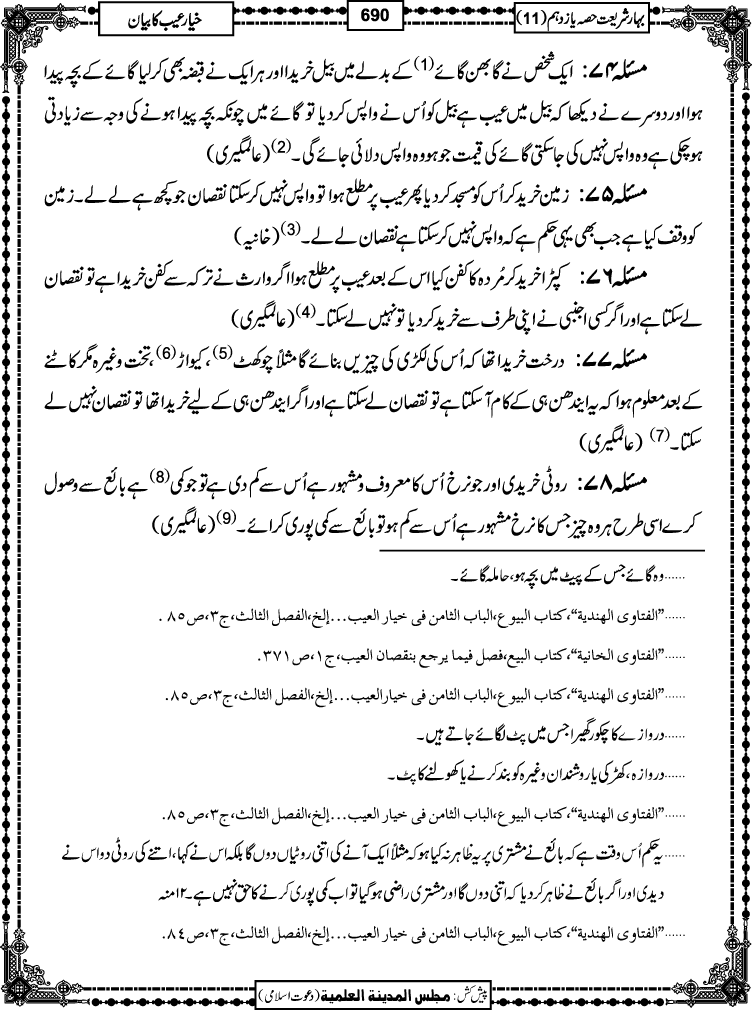 بہارِ شریعت حصہ یازدہم (11)
690
خیار عیب کا بیان
مسئلہ ۷۴: ایک شخص نے گابھن گائے(1) کے بدلے میں بیل خریدا اور ہر ایک نے قبضہ بھی کرلیا گائے کے بچہ پیدا
ہوا اور دوسرے نے دیکھا کہ بیل میں عیب ہے بیل کو اُس نے واپس کردیا تو گائے میں چونکہ بچہ پیدا ہونے کی وجہ سے زیادتی
ہوچکی ہے وہ واپس نہیں کی جاسکتی گائے کی قیمت جو ہو وہ واپس دلائی جائے گی۔(2) (عالمگیری)
مسئلہ ۷۵: زمین خرید کر اُس کو مسجد کردیا پھر عیب پر مطلع ہوا تو واپس نہیں کرسکتا نقصان جو کچھ ہے لے لے۔ زمین
کو وقف کیا ہے جب بھی یہی حکم ہے کہ واپس نہیں کرسکتا ہے نقصان لے لے۔(3) (خانیہ)
مسئلہ ۷۶: کپڑا خرید کر مُردہ کا کفن کیا اس کے بعد عیب پر مطلع ہوا اگر وارث نے ترکہ سے کفن خریدا ہے تو نقصان
لے سکتا ہے اور اگر کسی اجنبی نے اپنی طرف سے خرید کر دیا تو نہیں لے سکتا۔(4) (عالمگیری)
مسئلہ ۷۷: درخت خریدا تھا کہ اُس کی لکڑی کی چیزیں بنائے گا مثلاً چوکھٹ(5)، کیواڑ(6)، تخت وغیرہ مگر کاٹنے
کے بعد معلوم ہوا کہ یہ ایندھن ہی کے کام آسکتا ہے تو نقصان لے سکتا ہے اور اگر ایندھن ہی کے لیے خریدا تھا تو نقصان نہیں لے
سکتا۔(7) (عالمگیری)
مسئلہ ۷۸: روٹی خریدی اور جو نرخ اُس کا معروف و مشہور ہے اُس سے کم دی ہے تو جو کمی(8) ہے بائع سے وصول
کرے اسی طرح ہر وہ چیز جس کا نرخ مشہور ہے اُس سے کم ہو تو بائع سے کمی پوری کرائے۔(9) (عالمگیری)
......وہ گائے جس کے پیٹ میں بچہ ہو، حاملہ گائے۔
......”الفتاوی الهندیة“، کتاب البیوع، الباب الثامن فی خیار العیب...إلخ، الفصل الثالث، ج۳، ص۸۵.
......”الفتاوی الخانیة“، کتاب البیع، فصل فیما یرجع بنقصان العیب، ج۱، ص۳۷۱.
......”الفتاوی الهندیة“، کتاب البیوع، الباب الثامن فی خیار العیب...إلخ، الفصل الثالث، ج۳، ص۸۵.
......دروازے کا چکور گھیرا جس میں پٹ لگائے جاتے ہیں۔
......دروازہ، کھڑکی یا روشندان وغیرہ کو بند کرنے یا کھولنے کا پٹ۔
......”الفتاوی الهندیة“، کتاب البیوع، الباب الثامن فی خیار العیب...إلخ، الفصل الثالث، ج۳، ص۸۵.
......یہ حکم اُس وقت ہے کہ بائع نے مشتری پر یہ ظاہر نہ کیا ہو کہ مثلاً ایک آنے کی اتنی روٹیاں دوں گا بلکہ اس نے کہا، اتنے کی روٹی دو اس نے
دیدی اور اگر بائع نے ظاہر کردیا کہ اتنی دوں گا اور مشتری راضی ہوگیا تو اب کمی پوری کرنے کا حق نہیں ہے۔ ۱۲منہ
......”الفتاوی الهندیة“، کتاب البیوع، الباب الثامن فی خیار العیب...إلخ، الفصل الثالث، ج۳، ص۸۴.
پیش کش: مجلس المدینة العلمیة (دعوت اسلامی)